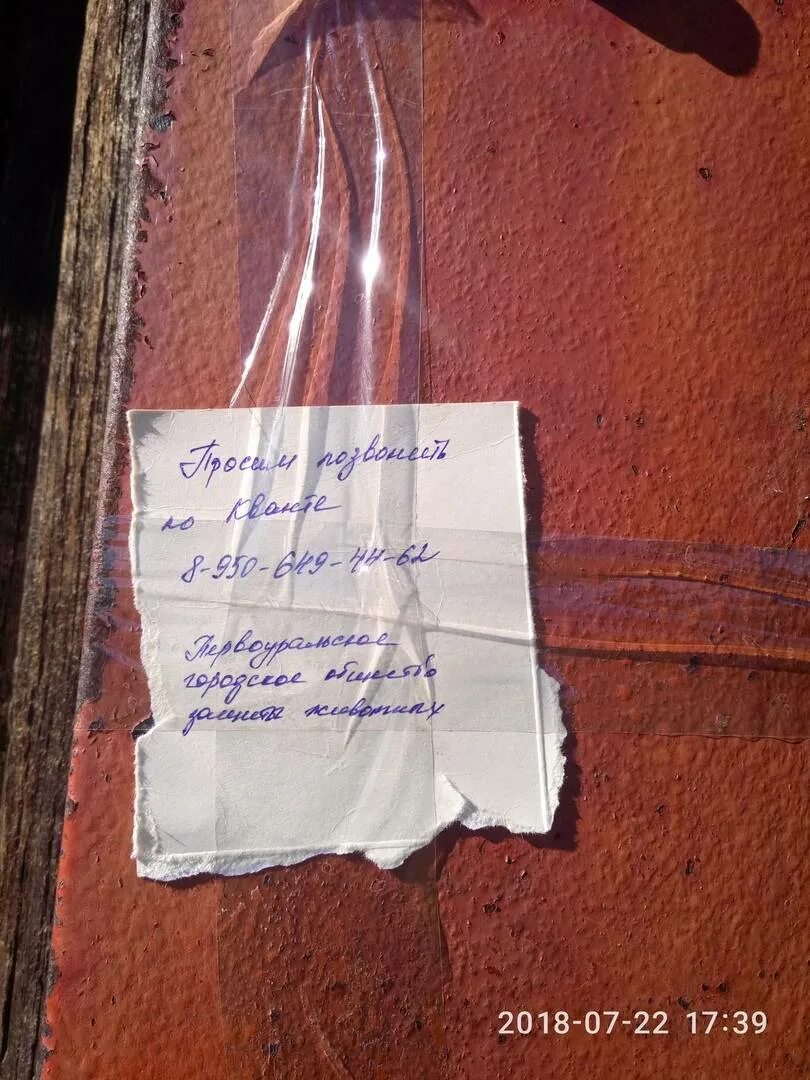 Просим позвонить
по Кванте
8-950-649-44-62
Первоуральское
городское общество
защиты животных
2018-07-22 17:39